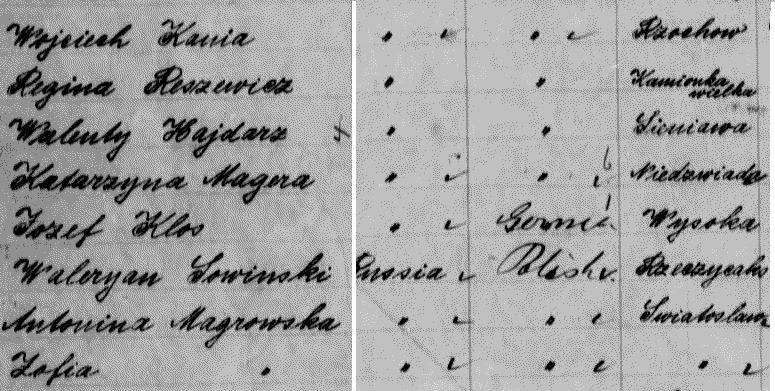 Wojciech Kania " " Rzochow
Regina Reszewicz " " Kamionka wielka
Walenty Hajdarz " " Sieniawa
Katarzyna Magera " " Niedzwiada
Jozef Klos " German Wysoka
Waleryan Sowinski Russia Polish
Antonina Magrowska " " Swiatoslaw
Zofia " " " "